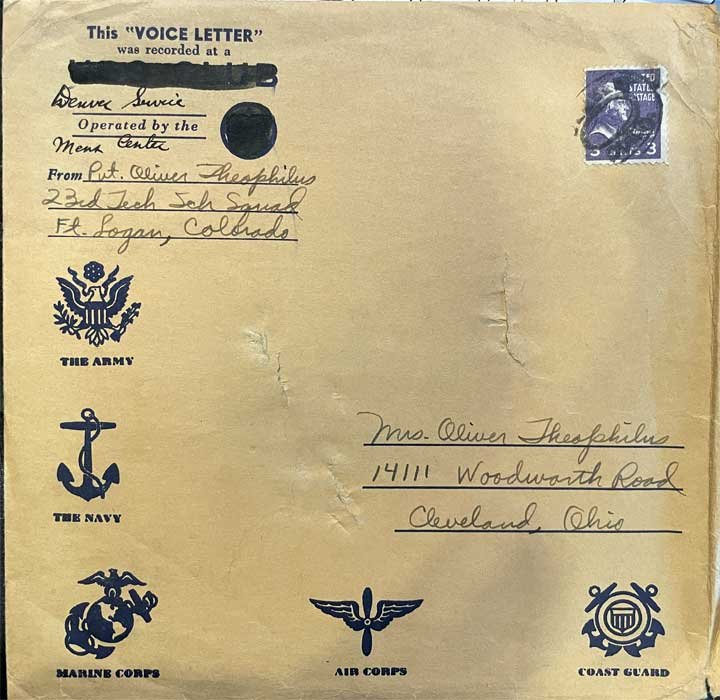 This "VOICE LETTER"
was recorded at a
Denver Service
Operated by the
Mens Center
From Pvt. Oliver Theophilus
23rd Tech Sch Squad
Ft. Logan, Colorado
UNITED
STATES
POSTAGE
3 CENTS 3
THE ARMY
Mrs. Oliver Theophilus
14111 Woodworth Road
Cleveland, Ohio
THE NAVY
MARINE CORPS
AIR CORPS
COAST GUARD